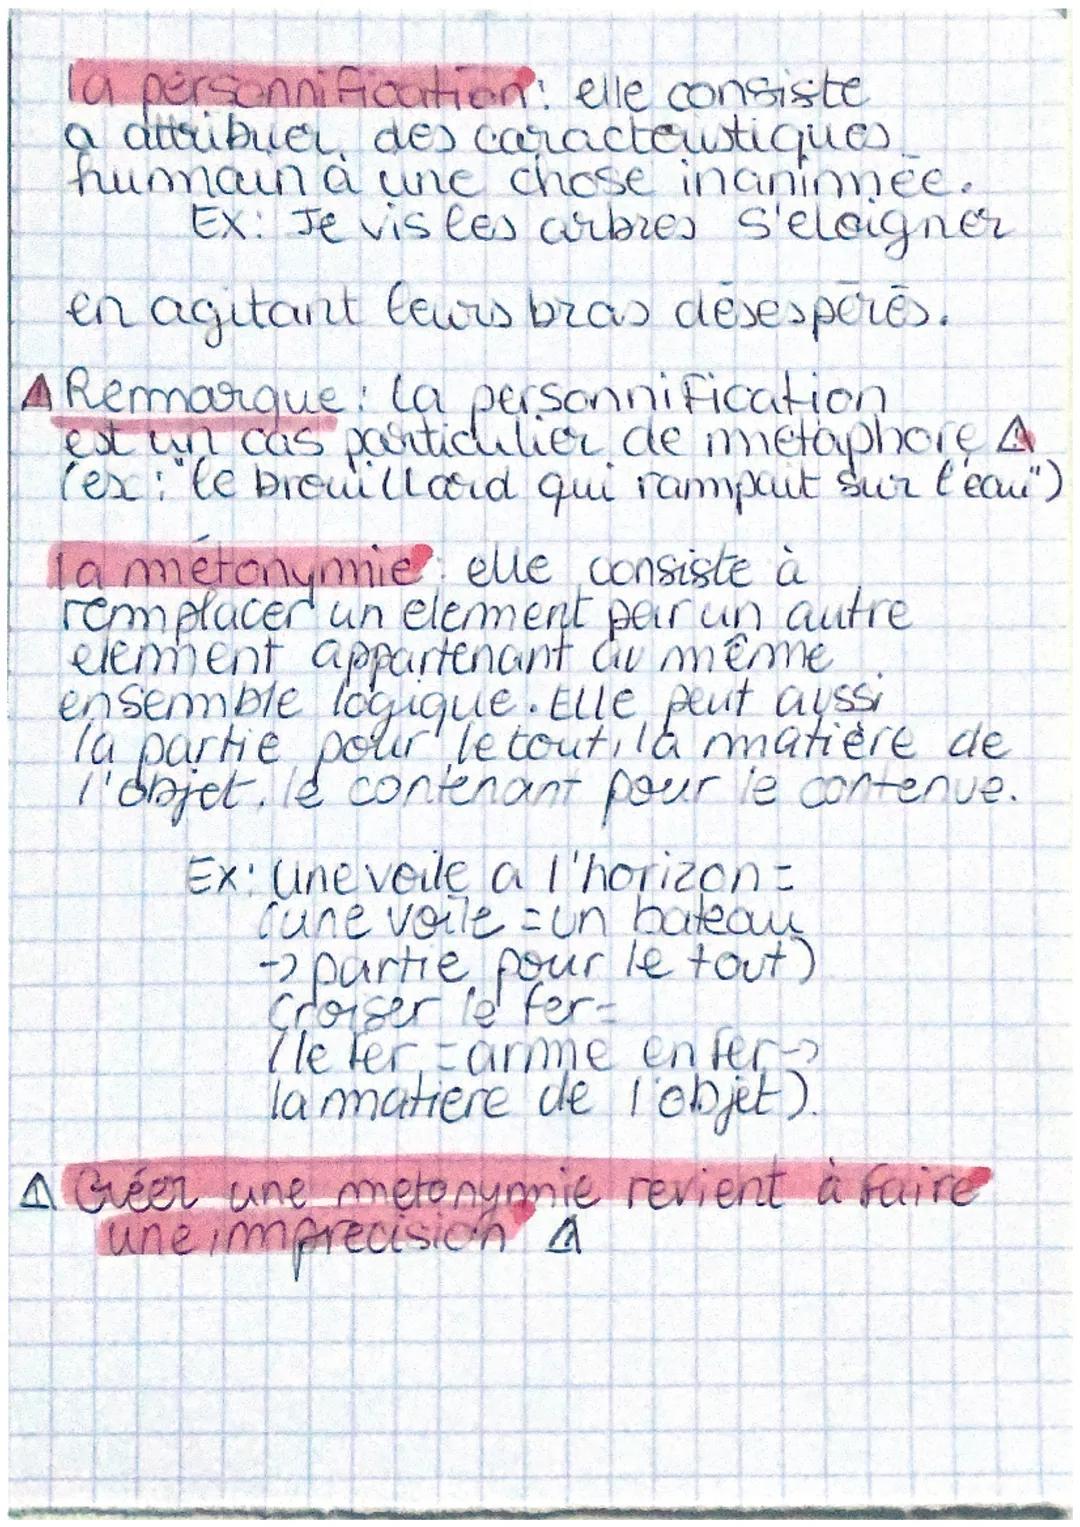 la personnification : elle consiste
a attribuer des caracteristiques
humain a une chose inanimnée.
Ex : Je vis les arbres s'eloigner
en agitant leurs bras désespérés.
⚠ Remarque : la personnification
est un cas particulier de métaphore ⚠
(ex : "le brouillard qui rampait sur l'eau")
la métonymie : elle consiste à
remplacer un element par un autre
element appartenant au même
ensemble logique. Elle peut aussi
la partie pour le tout, la matière de
l'objet, le contenant pour le contenue.
Ex : Une voile a l'horizon =
(une voile = un bateau
-> partie pour le tout)
Croiser le fer =
(le fer = arme en fer ->
la matiere de l'objet).
⚠ Créer une métonymie revient à faire
une imprecision ⚠